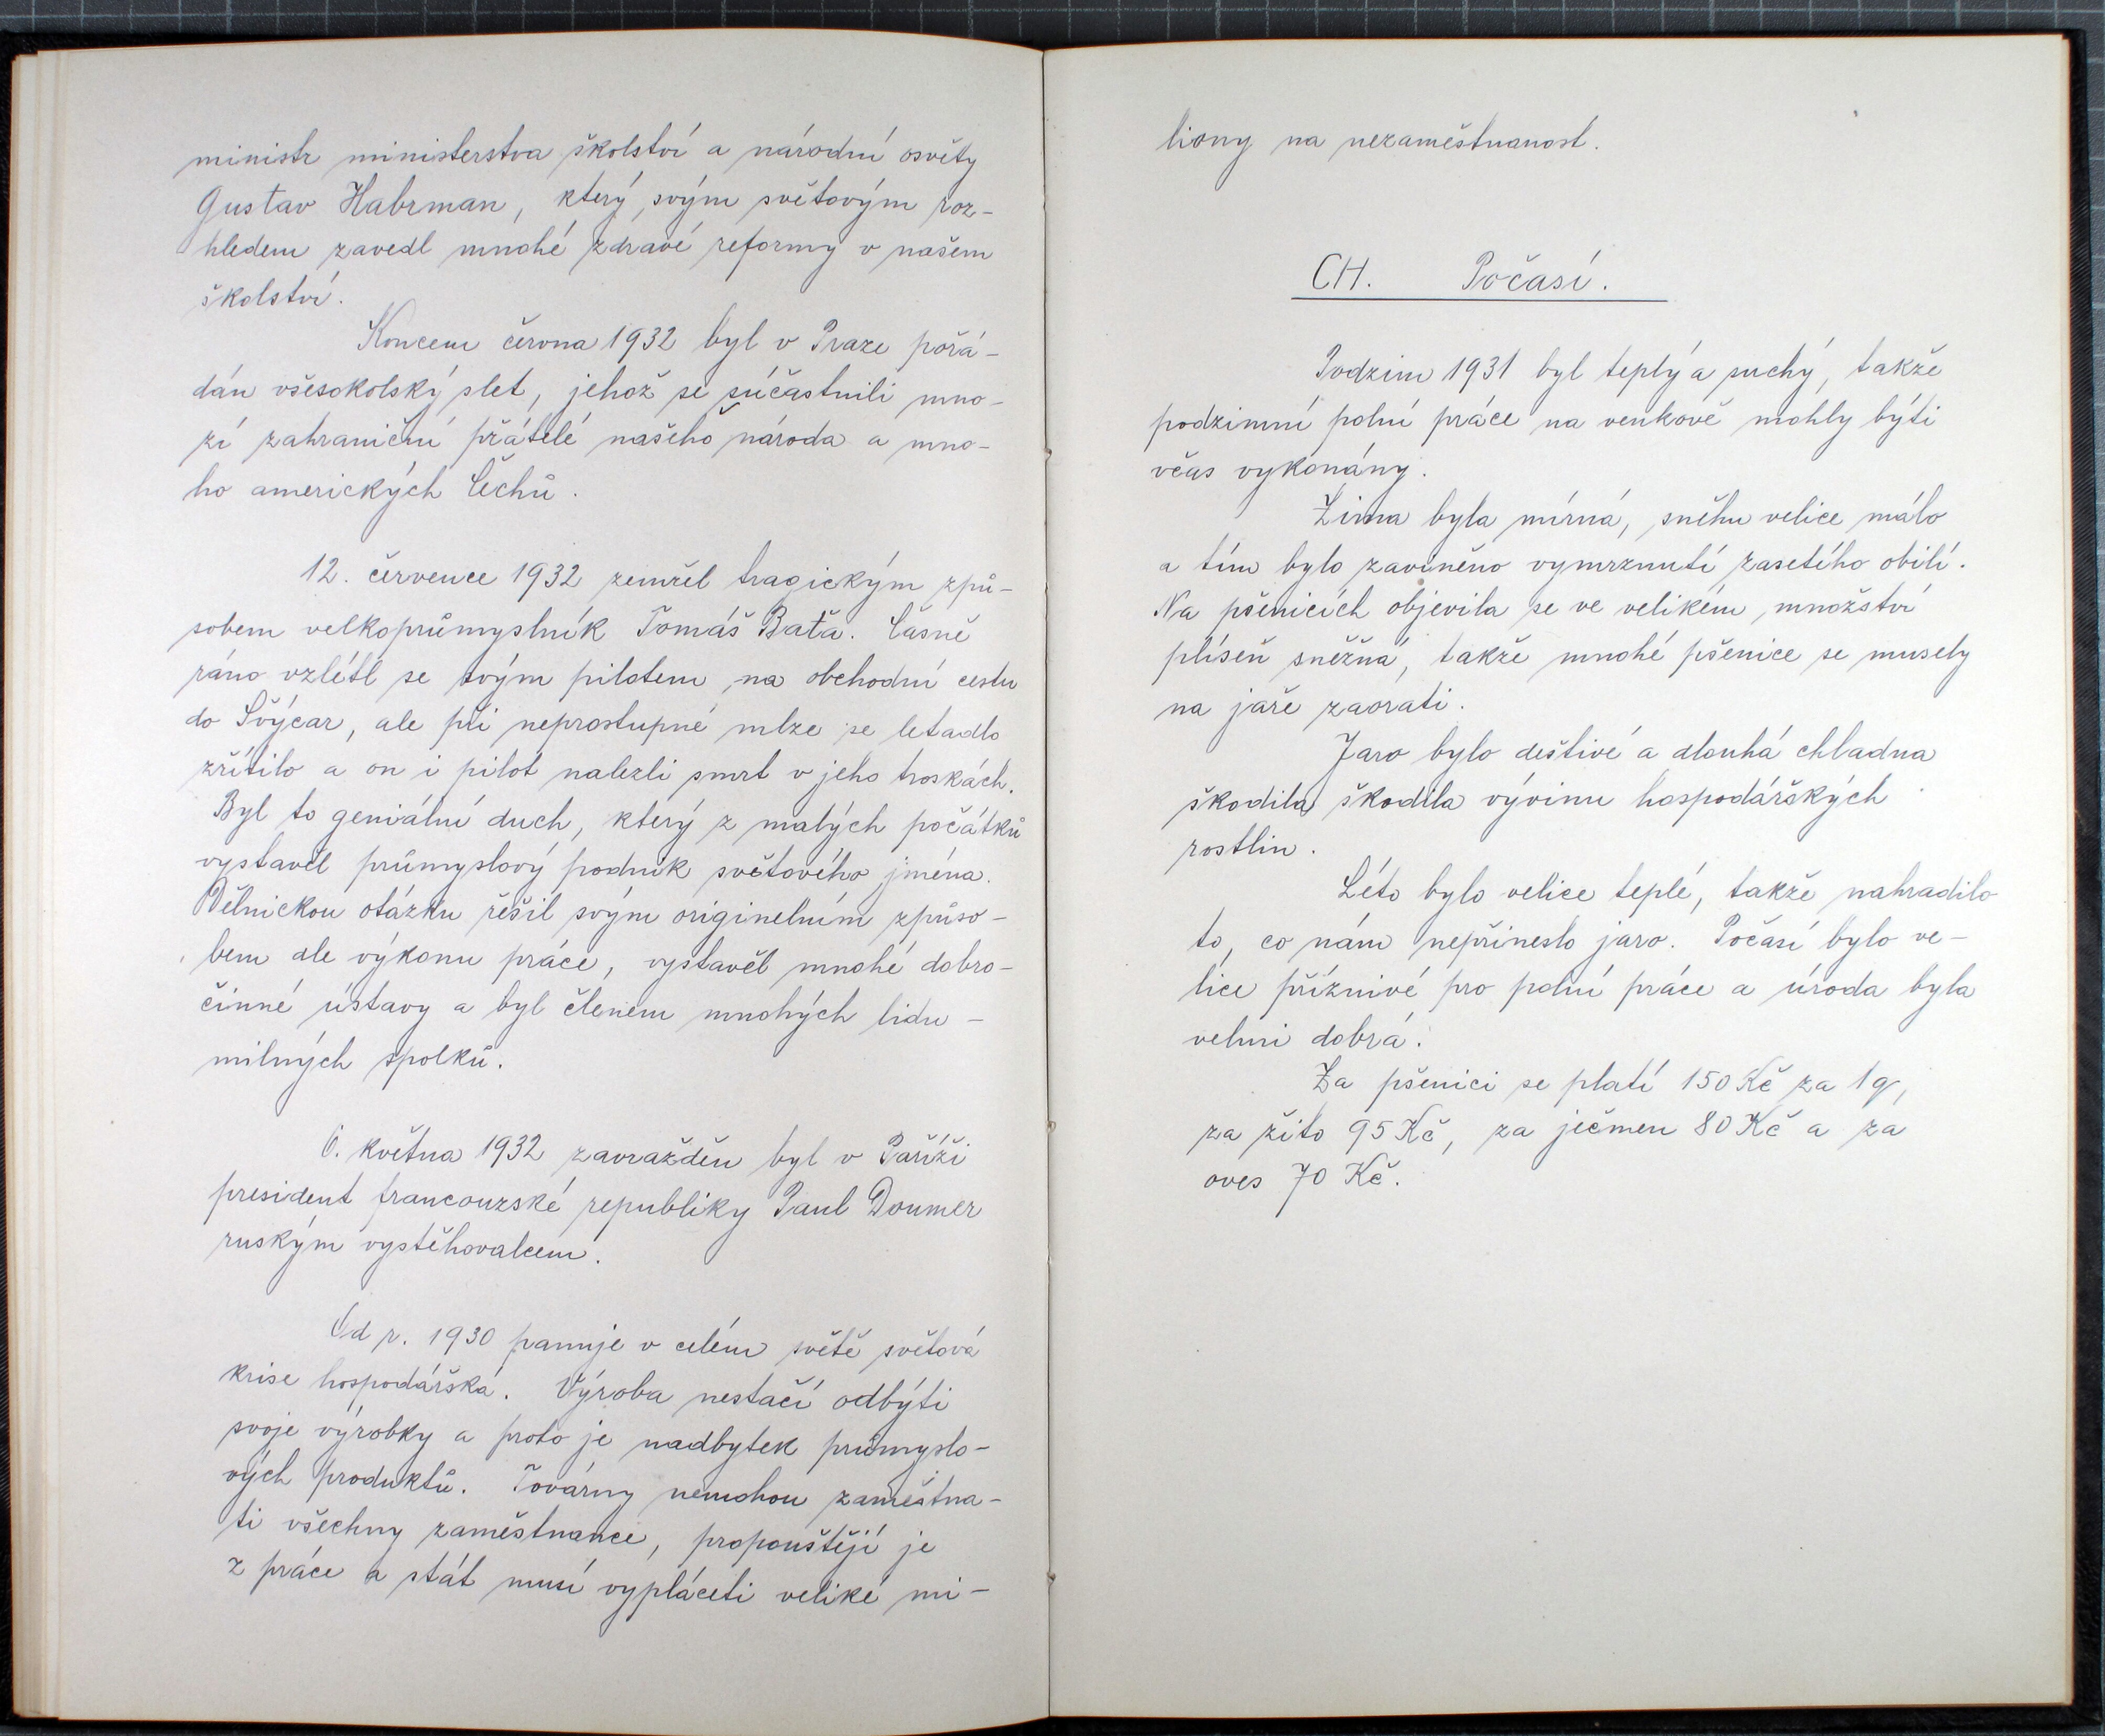 ministr ministerstva školství a národní osvěty
Gustav Habrman, který svým světovým roz-
hledem zavedl mnohé zdravé reformy v našem
školství.
Koncem června 1932 byl v Praze pořá-
dán všesokolský slet, jehož se súčastnili mno-
zí zahraniční přátelé našeho národa a mno-
ho amerických Čechů.
12. července 1932 zemřel tragickým způ-
sobem velkoprůmyslník Tomáš Baťa. Časně
ráno vzlétl se svým pilotem na obchodní cestu
do Švýcar, ale při neprostupné mlze se letadlo
zřítilo a on i pilot nalezli smrt v jeho troskách.
Byl to geniální duch, který z malých počátků
vystavěl průmyslový podnik světového jména.
Dělnickou otázku řešil svým originelním způso-
bem dle výkonu práce, vystavěl mnohé dobro-
činné ústavy a byl členem mnohých lidu-
milných spolků.
6. května 1932 zavražděn byl v Paříži
president francouzské republiky Paul Doumer
ruským vystěhovalcem.
Od r. 1930 panuje v celém světě světová
krise hospodářská. Výroba nestačí odbýti
svoje výrobky a proto je nadbytek průmyslo-
vých produktů. Továrny nemohou zaměstna-
ti všechny zaměstnance, propouštějí je
z práce a stát musí vypláceti veliké mi-
liony na nezaměstnanost.
CH. Počasí.
Podzim 1931 byl teplý a suchý, takže
podzimní polní práce na venkově mohly býti
včas vykonány.
Zima byla mírná, sněhu velice málo
a tím bylo zaviněno vymrznutí zasetého obilí.
Na pšenicích objevila se ve velikém množství
plíseň sněžná, takže mnohé pšenice se musely
na jaře zaorati.
Jaro bylo deštivé a dlouhá chladna
škodila škodila vývinu hospodářských
rostlin.
Léto bylo velice teplé, takže nahradilo
to, co nám nepřineslo jaro. Počasí bylo ve-
lice příznivé pro polní práce a úroda byla
velmi dobrá.
Za pšenici se platí 150 Kč za 1 q,
za žito 95 Kč, za ječmen 80 Kč a za
oves 70 Kč.